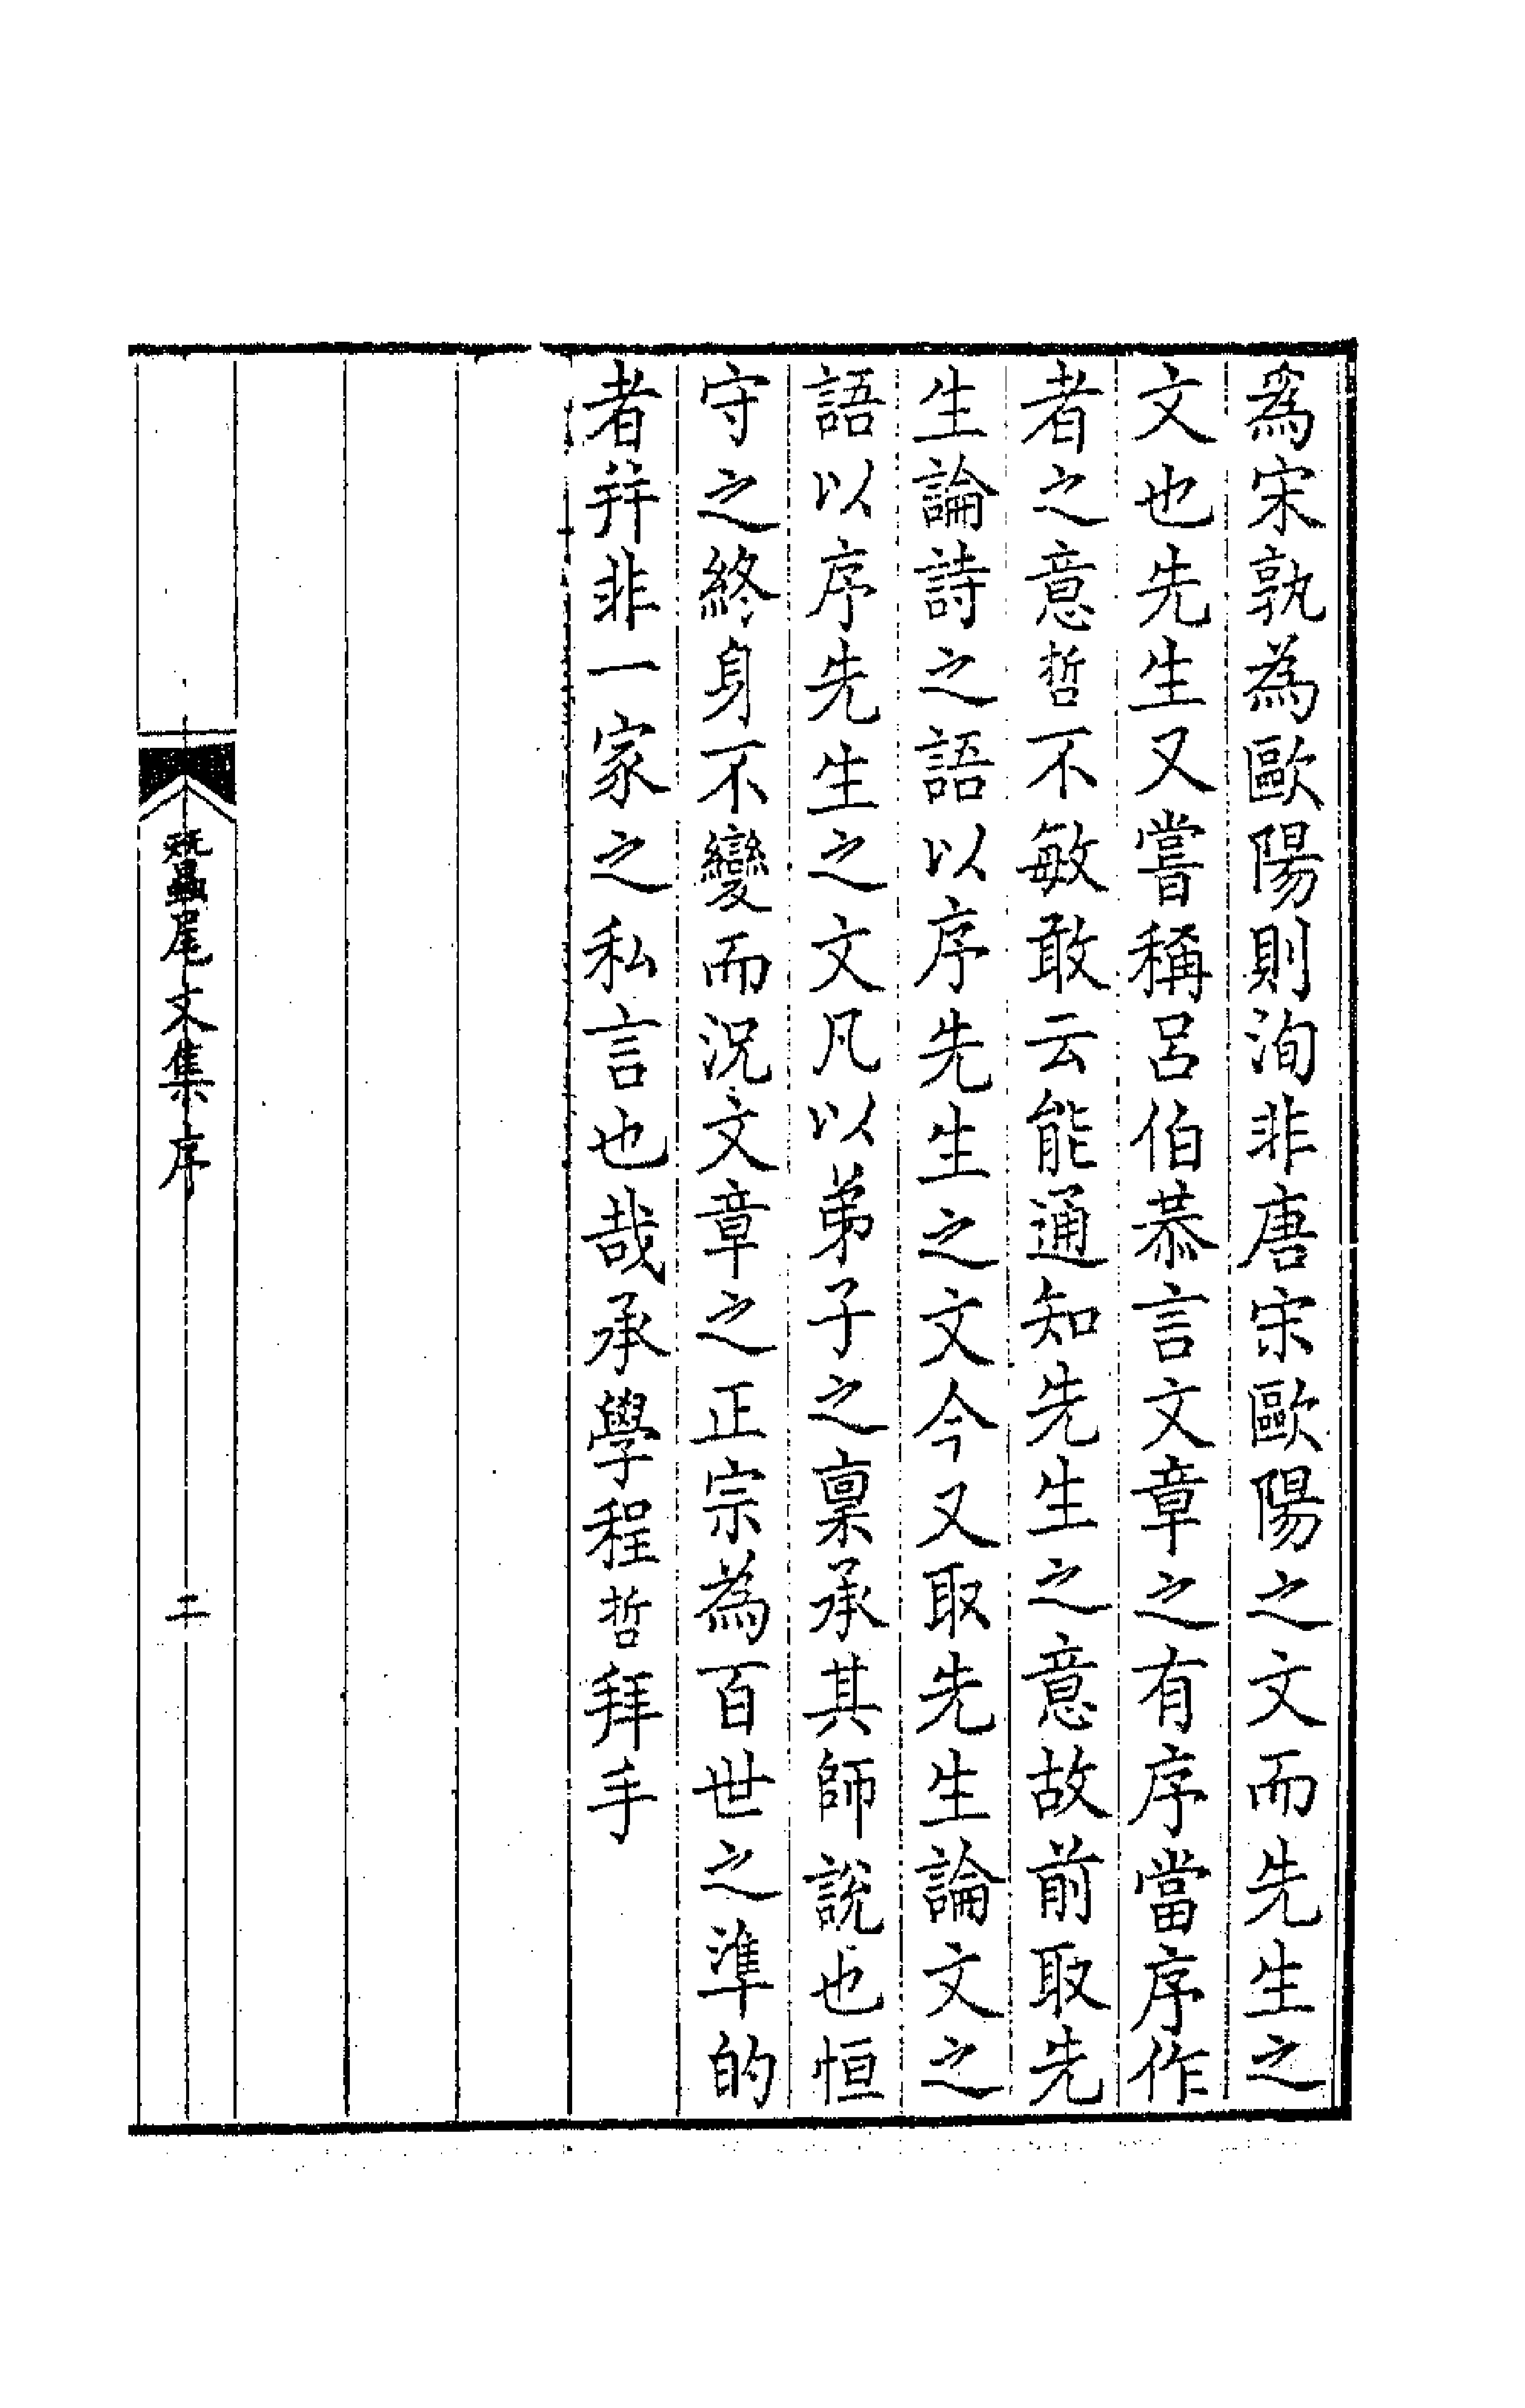 爲宋孰為歐陽則洵非唐宋歐陽之文而先生之
文也先生又嘗稱呂伯恭言文章之有序當序作
者之意哲不敏敢云能通知先生之意故前取先
生論詩之語以序先生之文今又取先生論文之
語以序先生之文凡以弟子之稟承其師說也恒
守之終身不變而況文章之正宗為百世之準的
者并非一家之私言也哉承學程哲拜手
蠶尾文集序
二